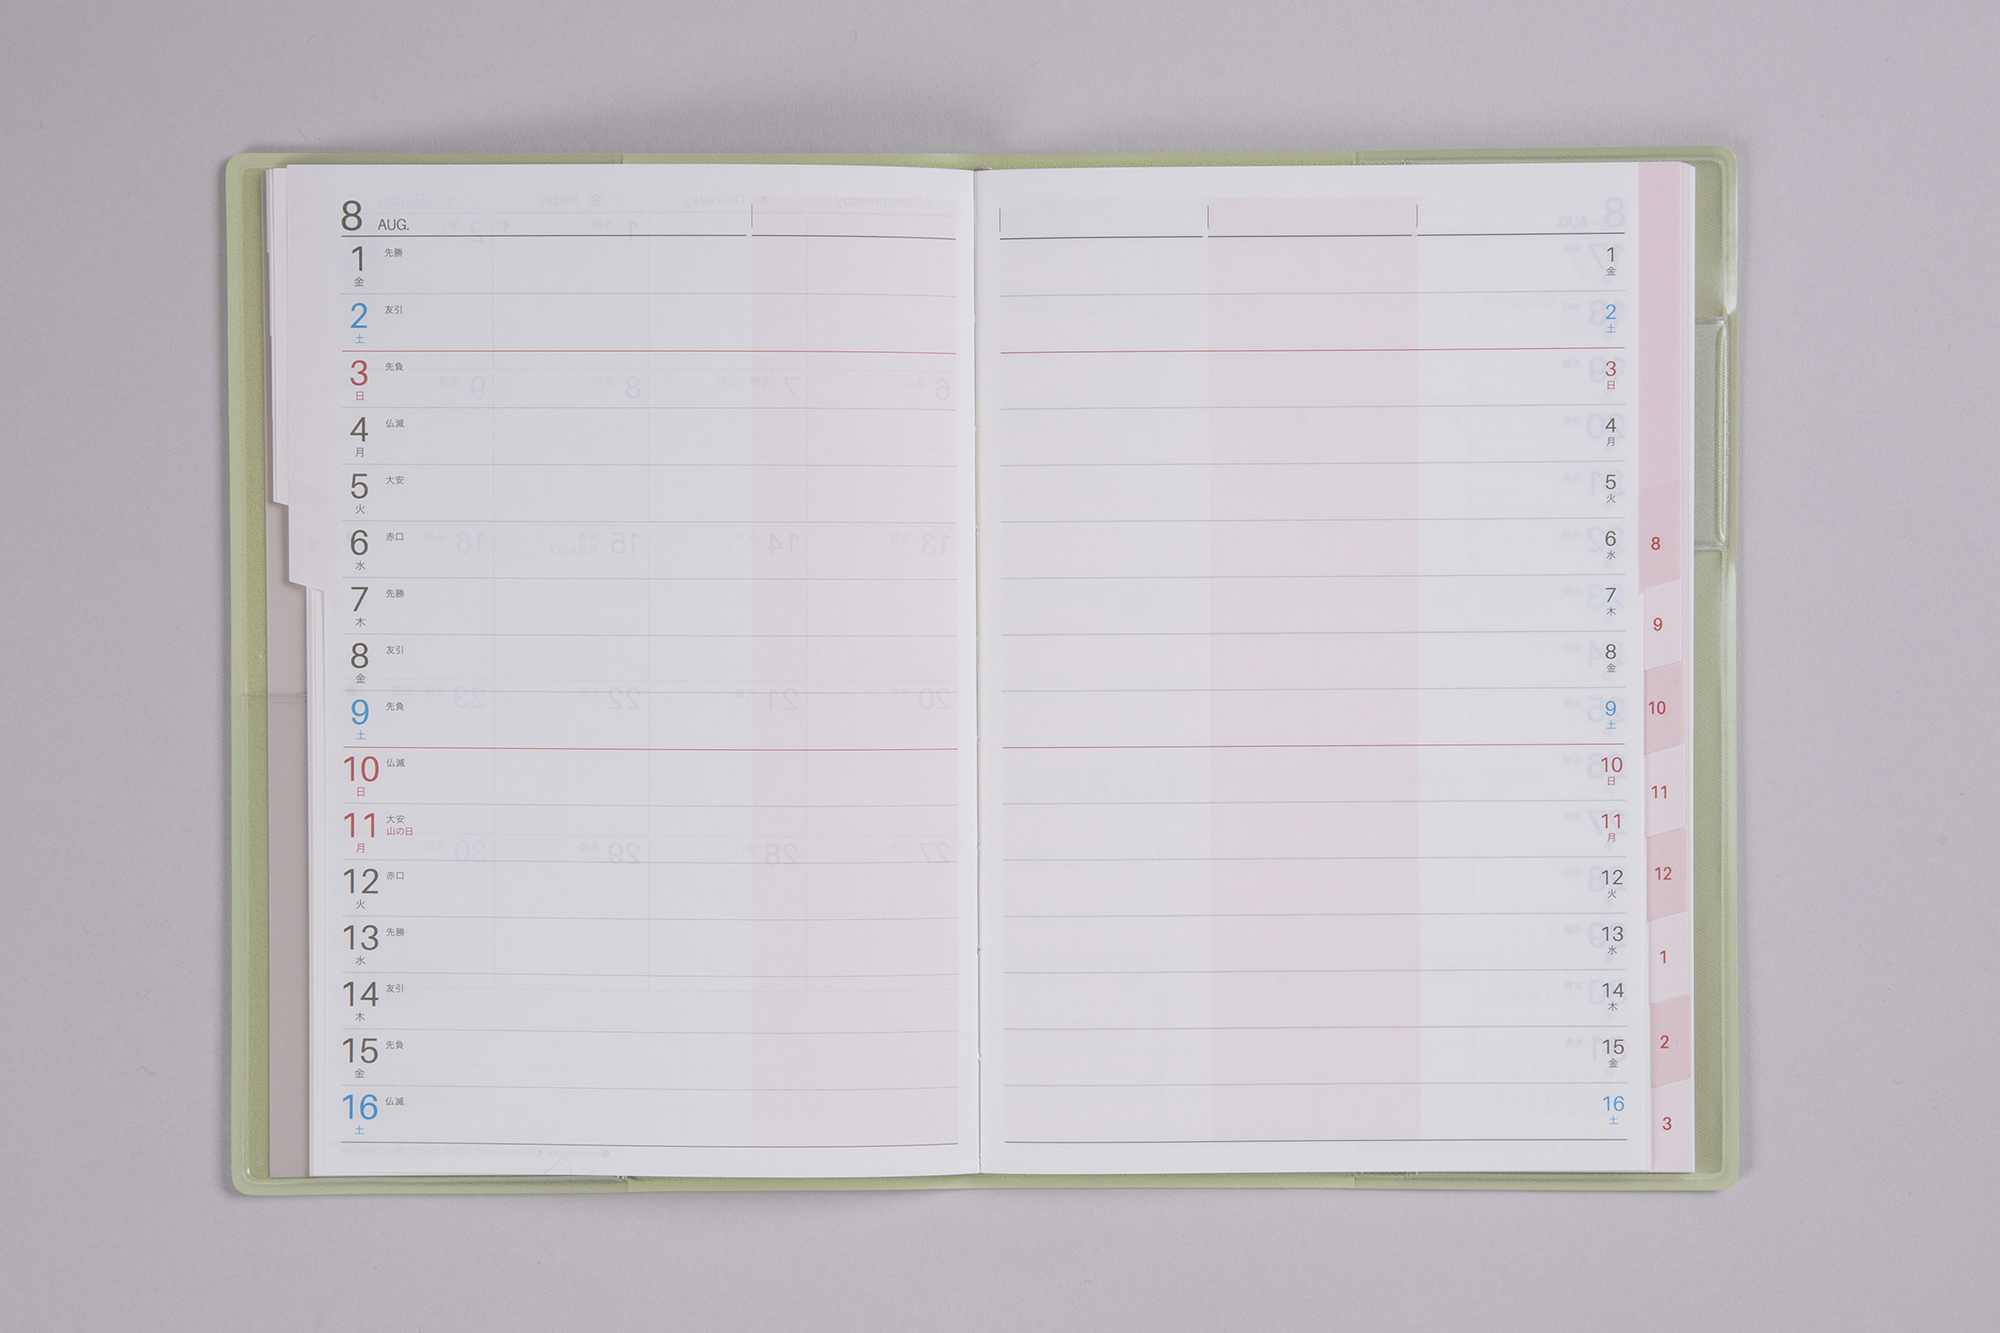 8 AUG.
1 先勝
金
2 友引
土
3 先負
日
4 仏滅
月
5 大安
火
6 赤口
水
7 先勝
木
8 友引
金
9 先負
土
10 仏滅
日
11 大安
山の日
月
12 赤口
火
13 先勝
水
14 友引
木
15 先負
金
16 仏滅
土
1
金
2
土
3
日
4
月
5
火
6
水
7
木
8
金
9
土
10
日
11
月
12
火
13
水
14
木
15
金
16
土
8
9
10
11
12
1
2
3